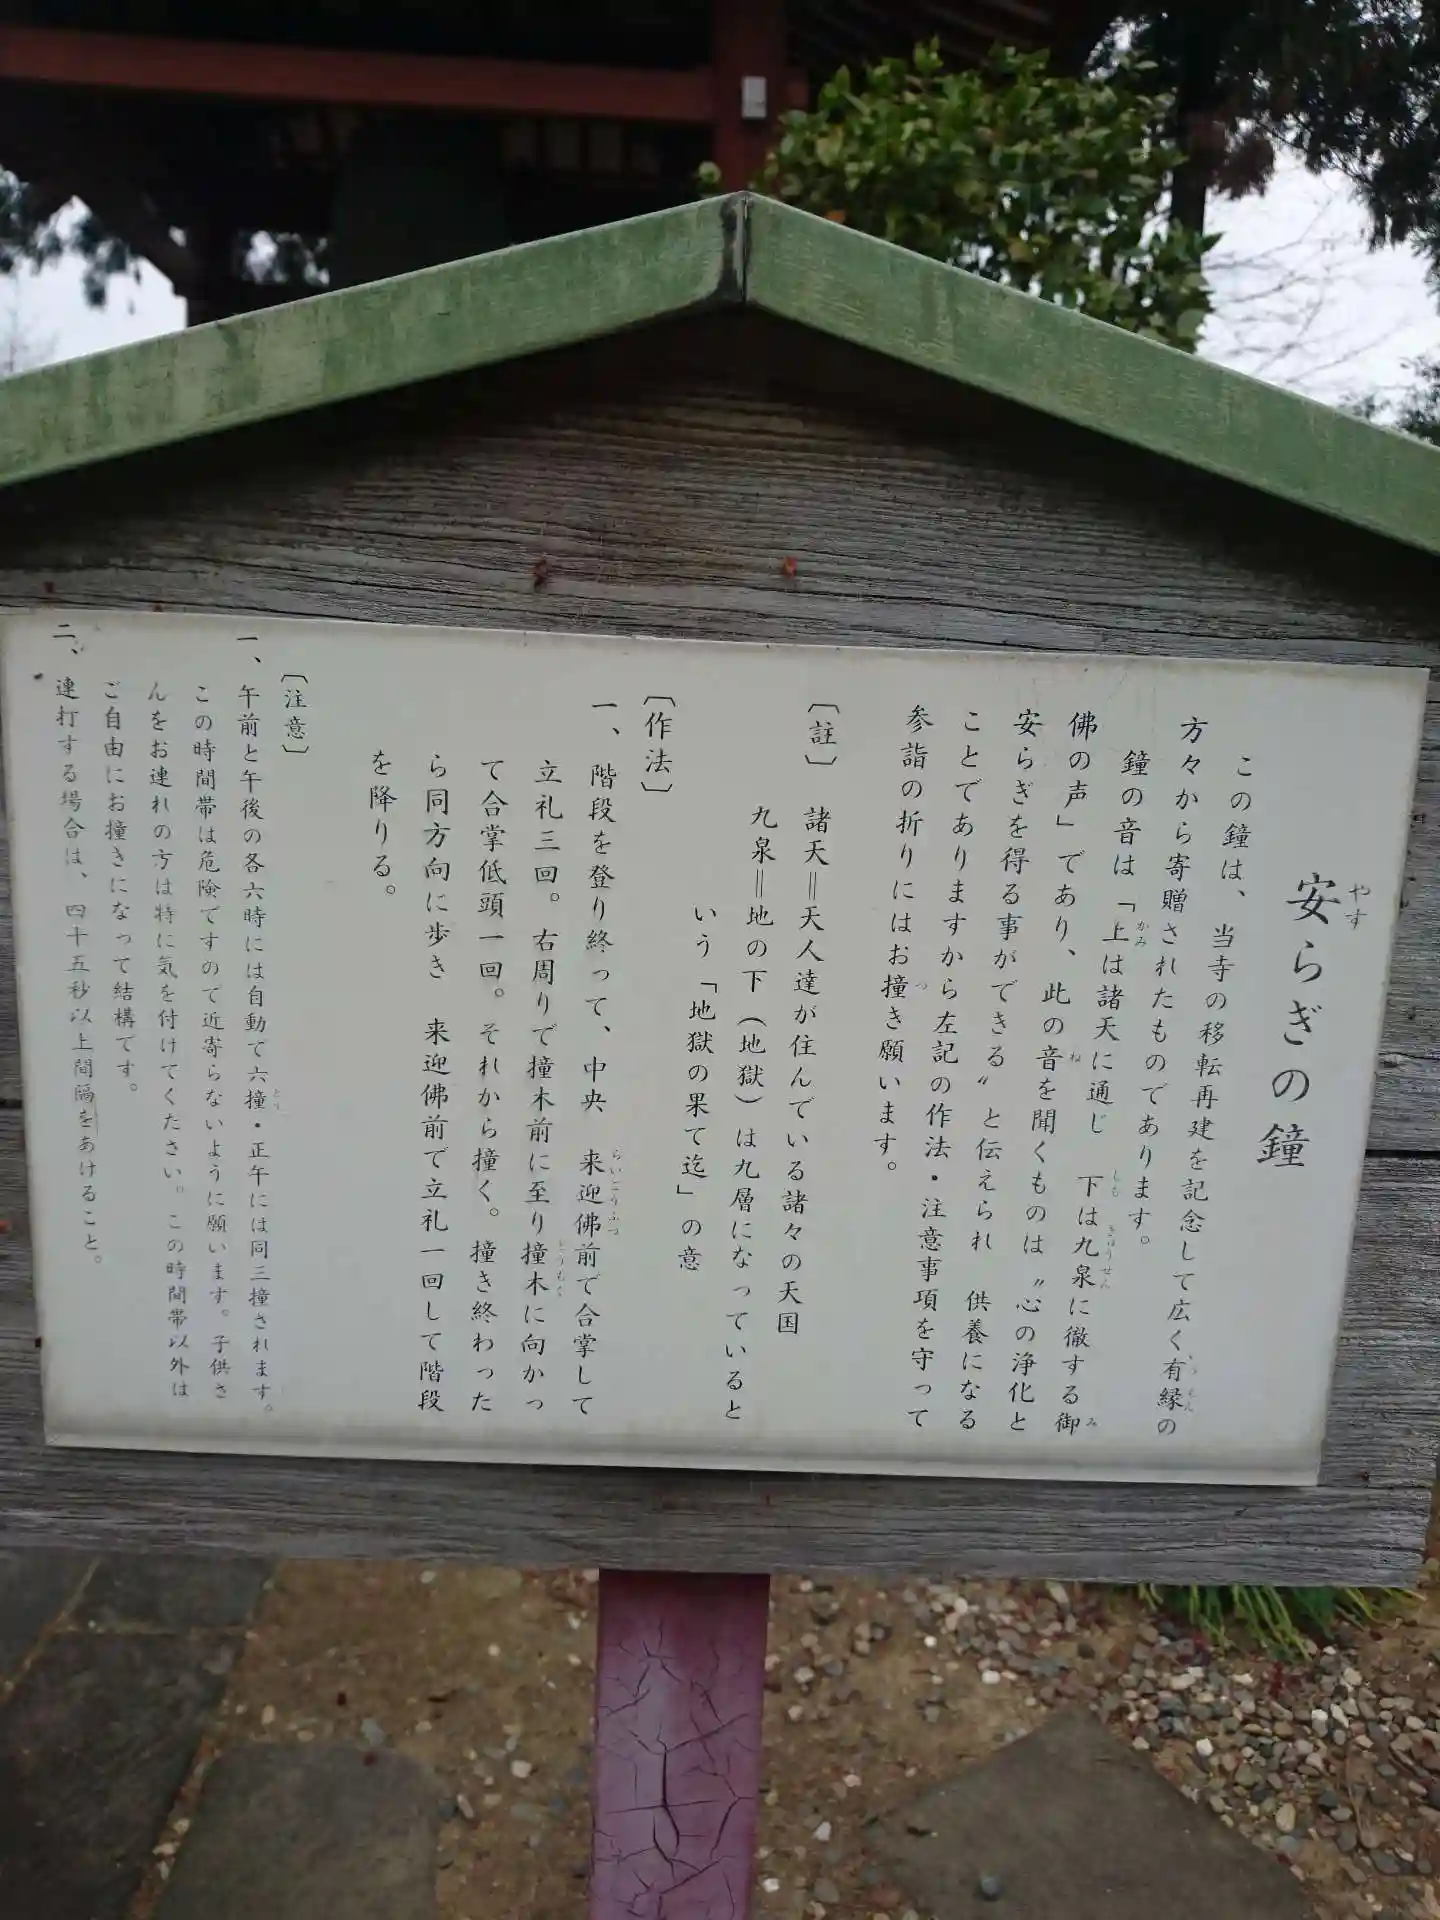 安らぎの鐘
この鐘は、当寺の移転再建を記念して広く有縁の
方々から寄贈されたものであります。
鐘の音は「上は諸天に通じ 下は九泉に徹する御
佛の声」であり、此の音を聞くものは〝心の浄化と
安らぎを得る事ができる〟と伝えられ 供養になる
ことでありますから左記の作法・注意事項を守って
参詣の折りにはお撞き願います。
〔註〕 諸天＝天人達が住んでいる諸々の天国
九泉＝地の下（地獄）は九層になっていると
いう「地獄の果て迄」の意
〔作法〕
一、階段を登り終って、中央 来迎佛前で合掌して
立礼三回。右周りで撞木前に至り撞木に向かっ
て合掌低頭一回。それから撞く。撞き終わった
ら同方向に歩き 来迎佛前で立礼一回して階段
を降りる。
〔注意〕
一、午前と午後の各六時には自動で六撞・正午には同三撞されます。
この時間帯は危険ですので近寄らないように願います。子供さ
んをお連れの方は特に気を付けてください。この時間帯以外は
ご自由にお撞きになって結構です。
二、連打する場合は、四十五秒以上間隔をあけること。